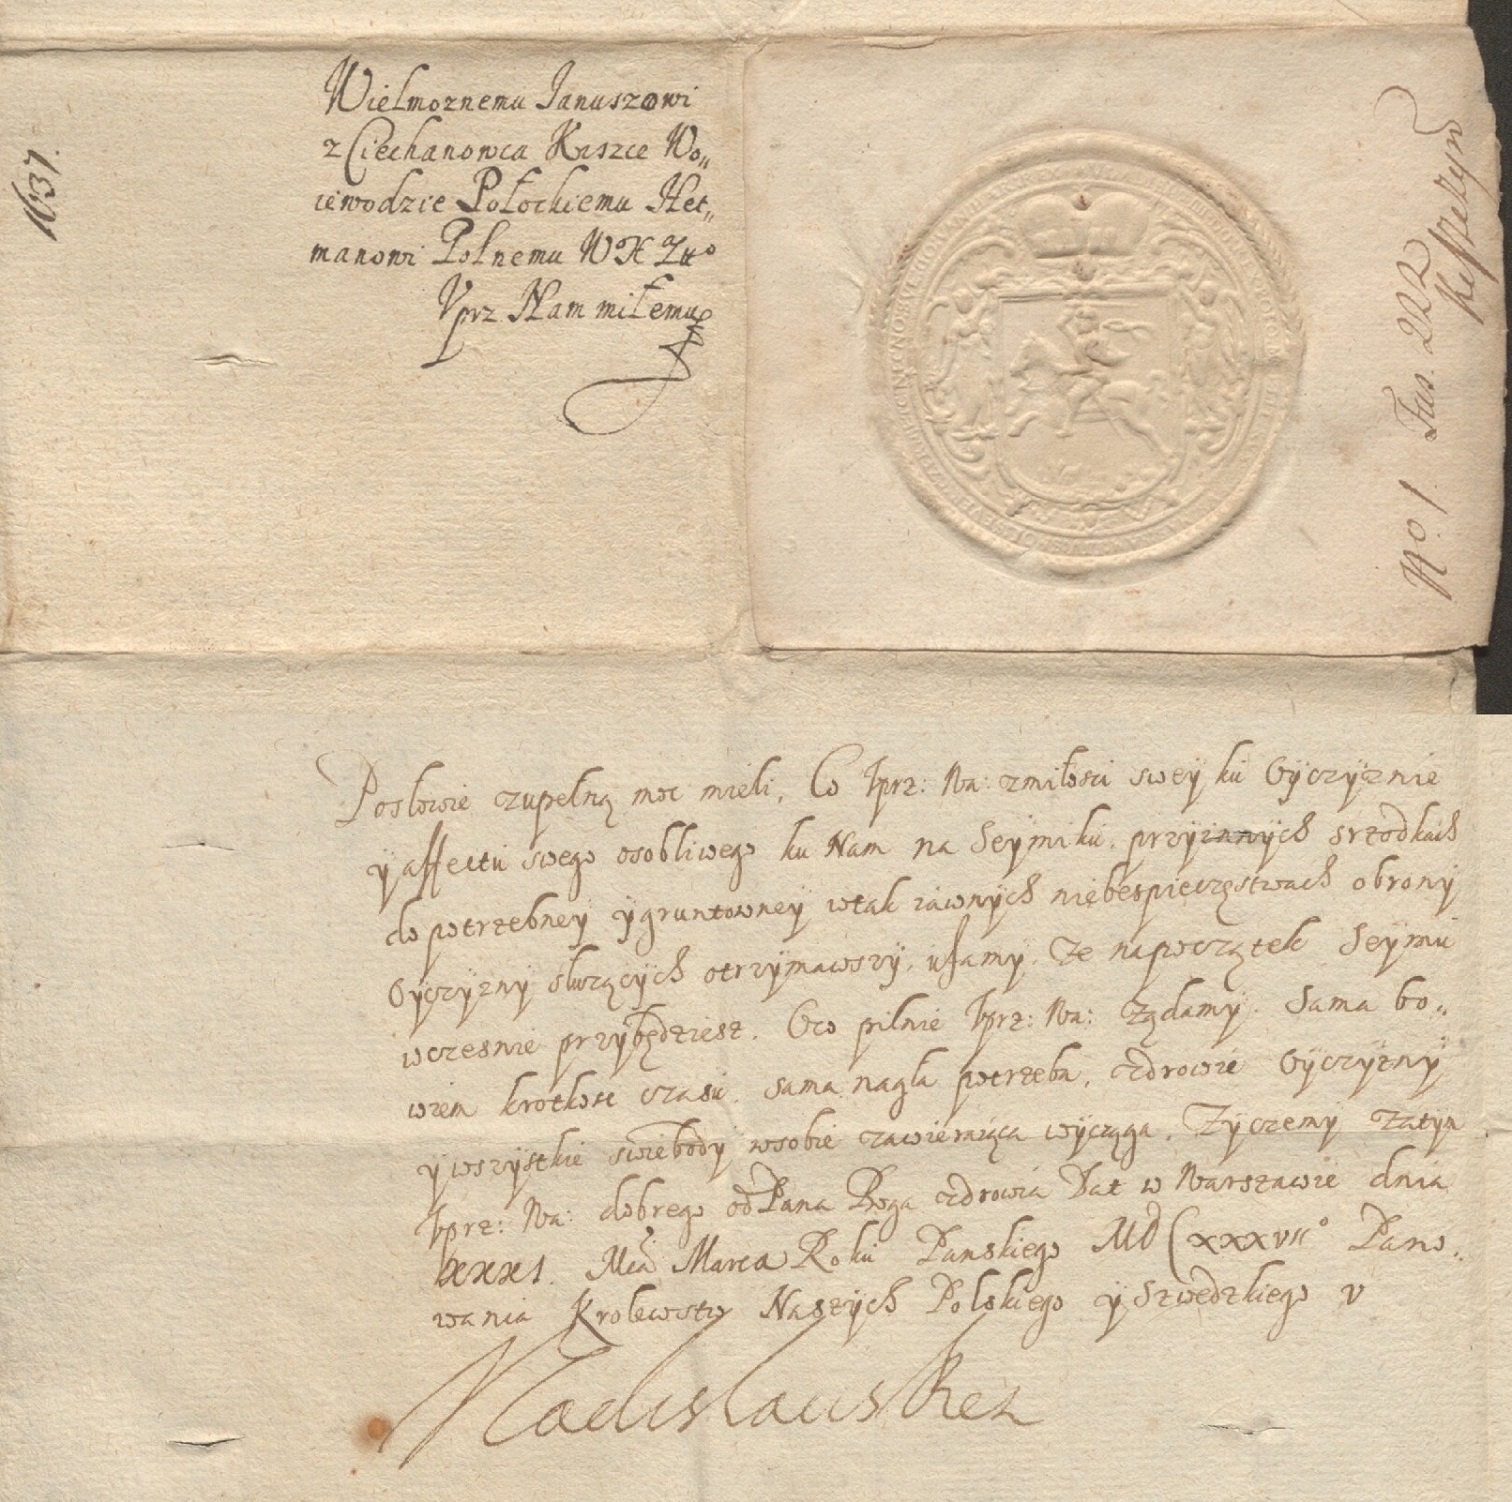 1637.
Wielmoznemu Januszowi
z Ciechanowca Kiszce Wo„
iewodzie Połockiemu Het„
manowi Polnemu W X Litt°
Vprz Nam miłemu
No. 1 Fas. 222
Posłowie zupełną moc mieli. Co Vprz: Wa: z miłosci swey ku Oyczyznie
y affectu swego osobliwego ku Nam na Seymiku. przy innych srzodkach
do potrzebney y gruntowney w tak iawnych niebespieczęstwach obrony
Oyczyzny słuzących otrzymawszy, ufamy. Ze na początek Seymu
wczesnie przybędziesz. O co pilnie Vprz: Wa: Ządamy. Sama bo„
wiem krotkosc czasu. sama nagła potrzeba, zdrowie Oyczyzny
y wszystkie swiebody w sobie zawieraiąca wyciąga. Zyczemy zatym
Vprz: Wa: dobrego od Pana Boga zdrowia Dat w Warszawie dnia
XXXI. Mca Marca Roku Panskiego MDCXXXVII° Pano„
wania Krolewstw Naszych Polskiego y Szwedzkiego V
Vladislaus Rex